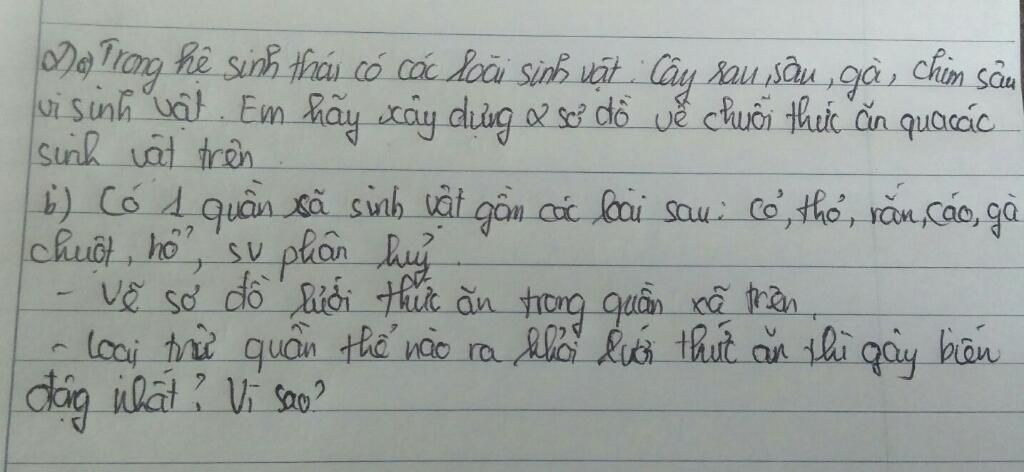 2) a) Trong hệ sinh thái có các loài sinh vật: Cây rau, sâu, gà, chim sâu
vi sinh vật. Em hãy xây dựng 2 sơ đồ về chuỗi thức ăn qua các
sinh vật trên.
b) Có 1 quần xã sinh vật gồm các loài sau: cỏ, thỏ, rắn, cáo, gà
chuột, hổ, sv phân huỷ.
- Vẽ sơ đồ lưới thức ăn trong quần xã trên.
- Loại trừ quần thể nào ra khỏi lưới thức ăn thì gây biến
động nhất? Vì sao?